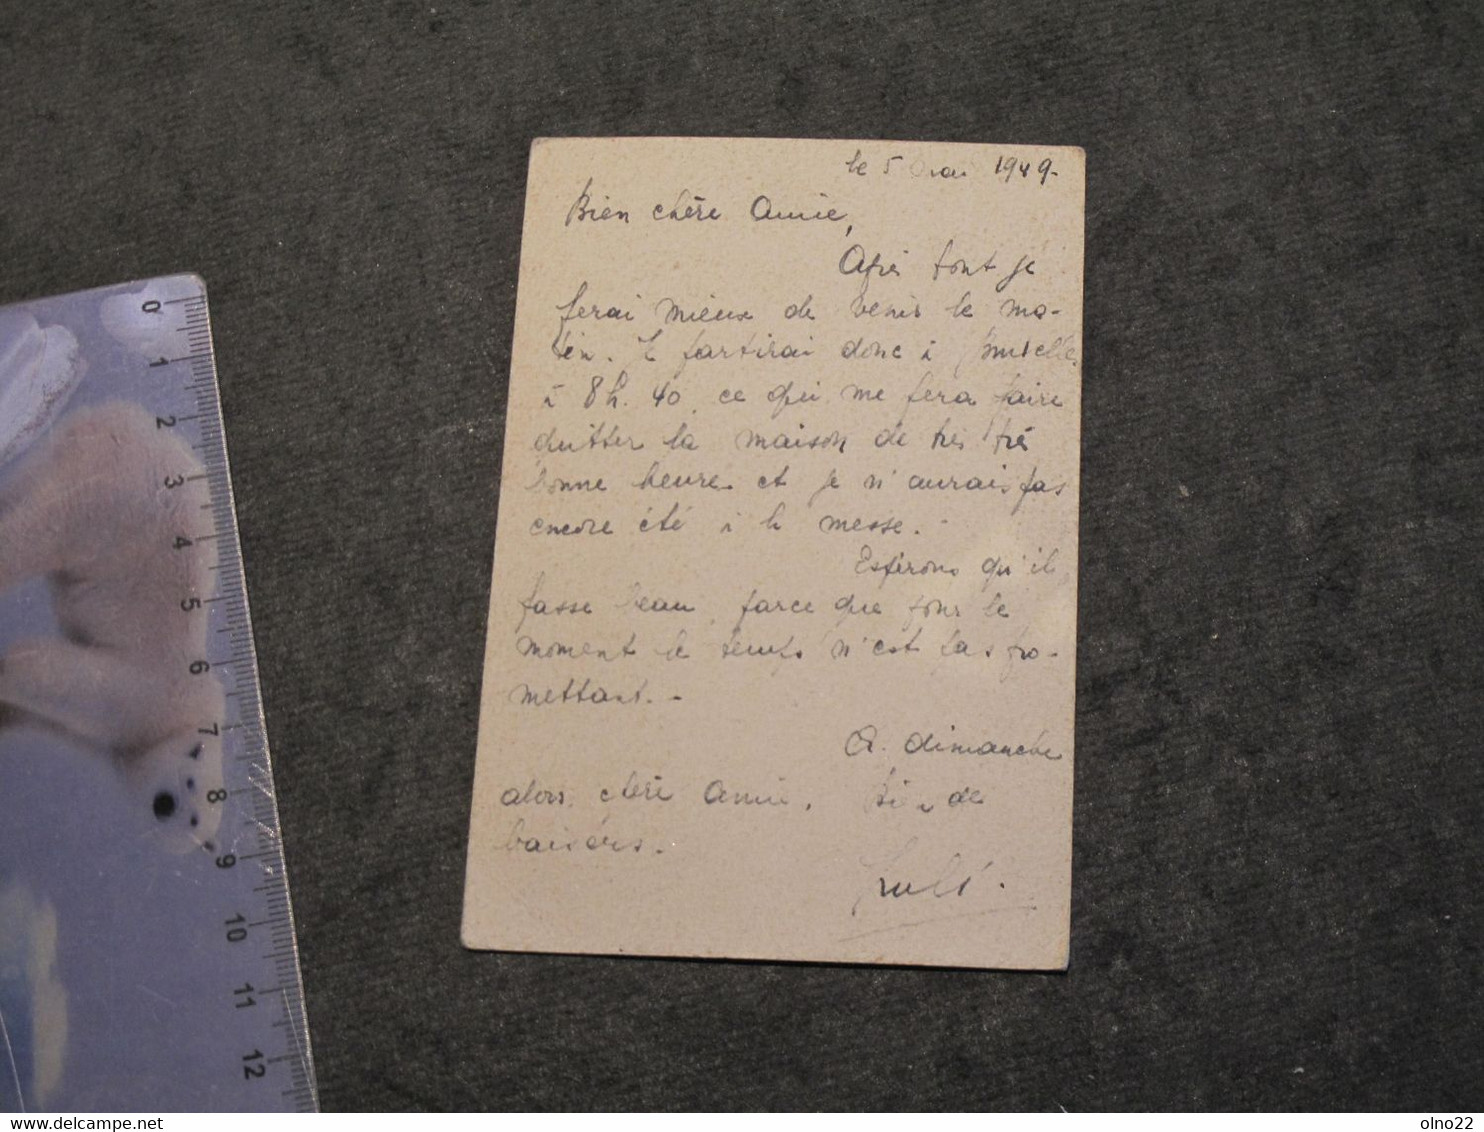 le 5 Mai 1949.
Bien chère Amie,
Après tout je
ferai mieux de venir le ma-
tin. Je partirai donc à Bruxelles
à 8h. 40 ce qui me fera faire
quitter la maison de très très
bonne heure et je n'aurais pas
encore été à la messe.
Espérons qu'il
fasse beau, parce que pour le
moment le temps n'est pas pro-
mettant. -
A dimanche
alors, chère Amie. Bien de
baisers.
0
1
2
3
4
5
6
7
8
9
10
11
12
delcampe.net
olno22